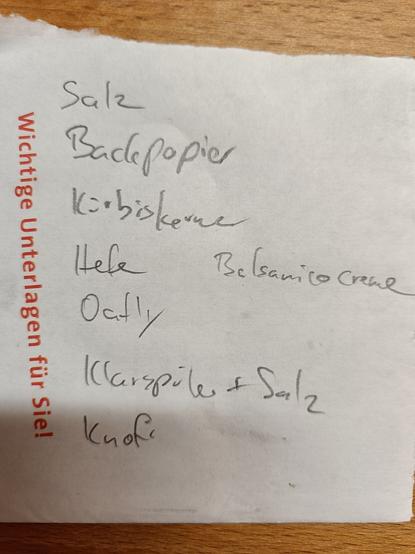 Salz
Backpapier
Kürbiskerne
Hefe
Balsamico Creme
Oatly
Klarspüler + Salz
Knofi
Wichtige Unterlagen für Sie!